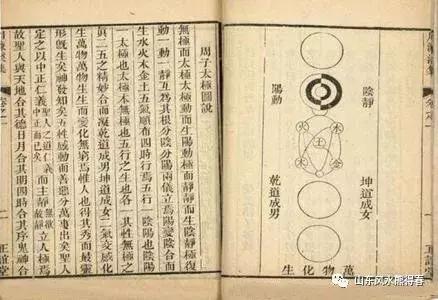 陰靜
陽動
火
水
土
木
金
坤道成女
乾道成男
萬物化生
周子太極圖說
無極而太極太極動而生陽動極而靜靜而生陰靜極復
動一動一靜互爲其根分陰分陽兩儀立焉陽變陰合而
生水火木金土五氣順布四時行焉五行一陰陽也陰陽
一太極也太極本無極也五行之生也各一其性無極之
眞二五之精妙合而凝乾道成男坤道成女二氣交感化
生萬物萬物生生而變化無窮焉惟人也得其秀而最靈
形旣生矣神發知矣五性感動而善惡分萬事出矣聖人
定之以中正仁義聖人之道仁義中正而已矣而主靜無欲故靜立人極焉
故聖人與天地合其德日月合其明四時合其序鬼神合
正誼堂
山东风水熊得春